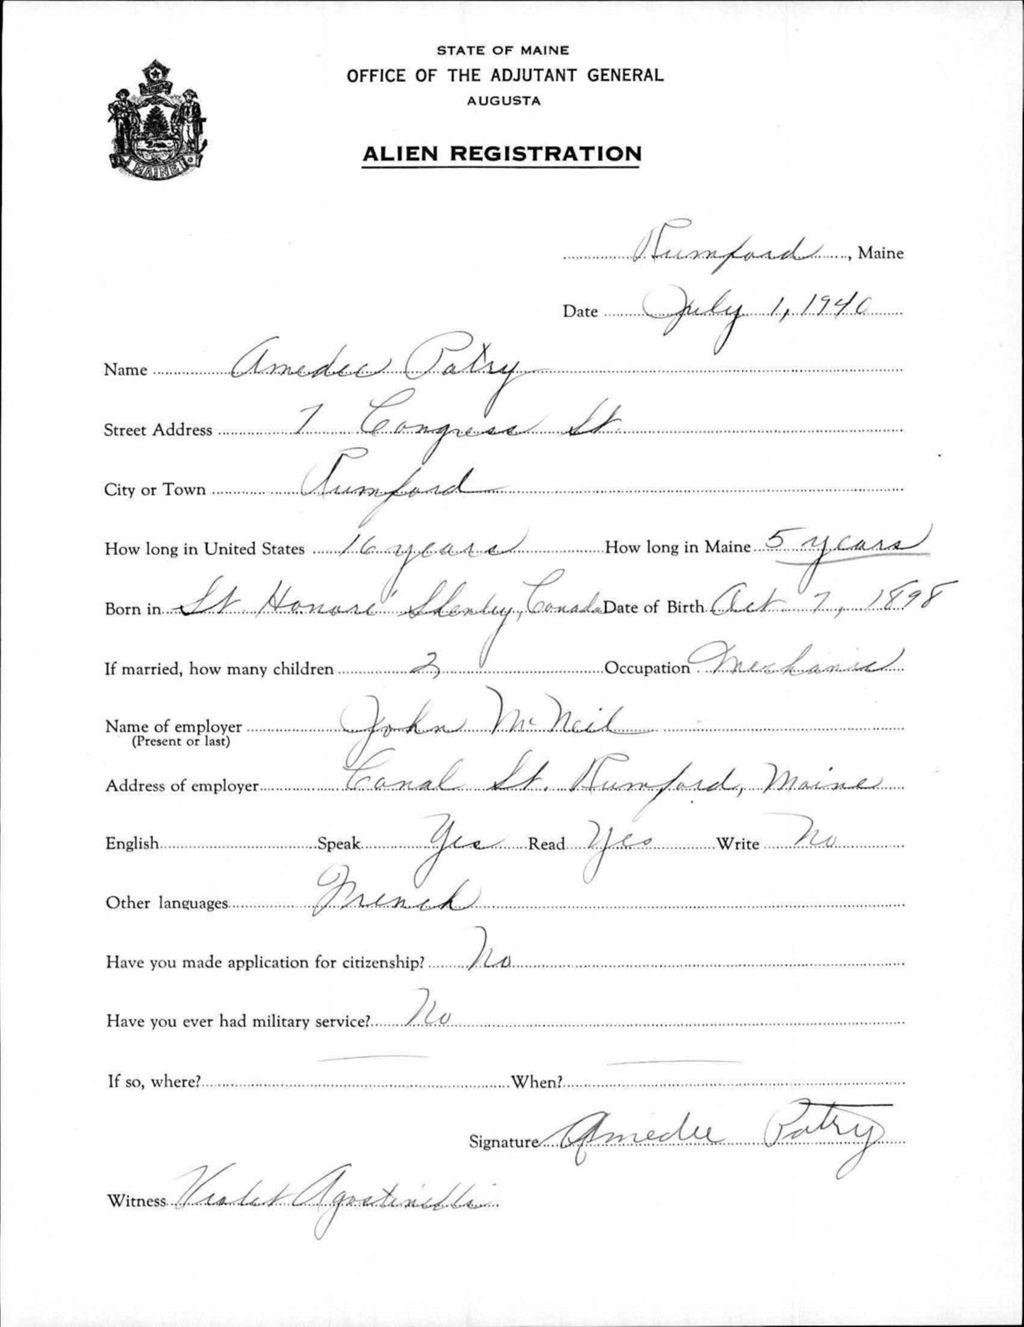 STATE OF MAINE
OFFICE OF THE ADJUTANT GENERAL
AUGUSTA
ALIEN REGISTRATION
MAINE
Rumford, Maine
Date July 1, 1940
Name Amedee Patry
Street Address 7 Congress St.
City or Town Rumford
How long in United States 16 years How long in Maine 5 years
Born in St Honore' Shenley, Canada Date of Birth Oct 7, 1898
If married, how many children 2 Occupation Mechanic
Name of employer John McNeil
(Present or last)
Address of employer Canal St. Rumford, Maine
English Speak Yes Read Yes Write No
Other languages French
Have you made application for citizenship? No
Have you ever had military service? No
If so, where? When?
Signature Amedee Patry
Witness Violet Agostinelli